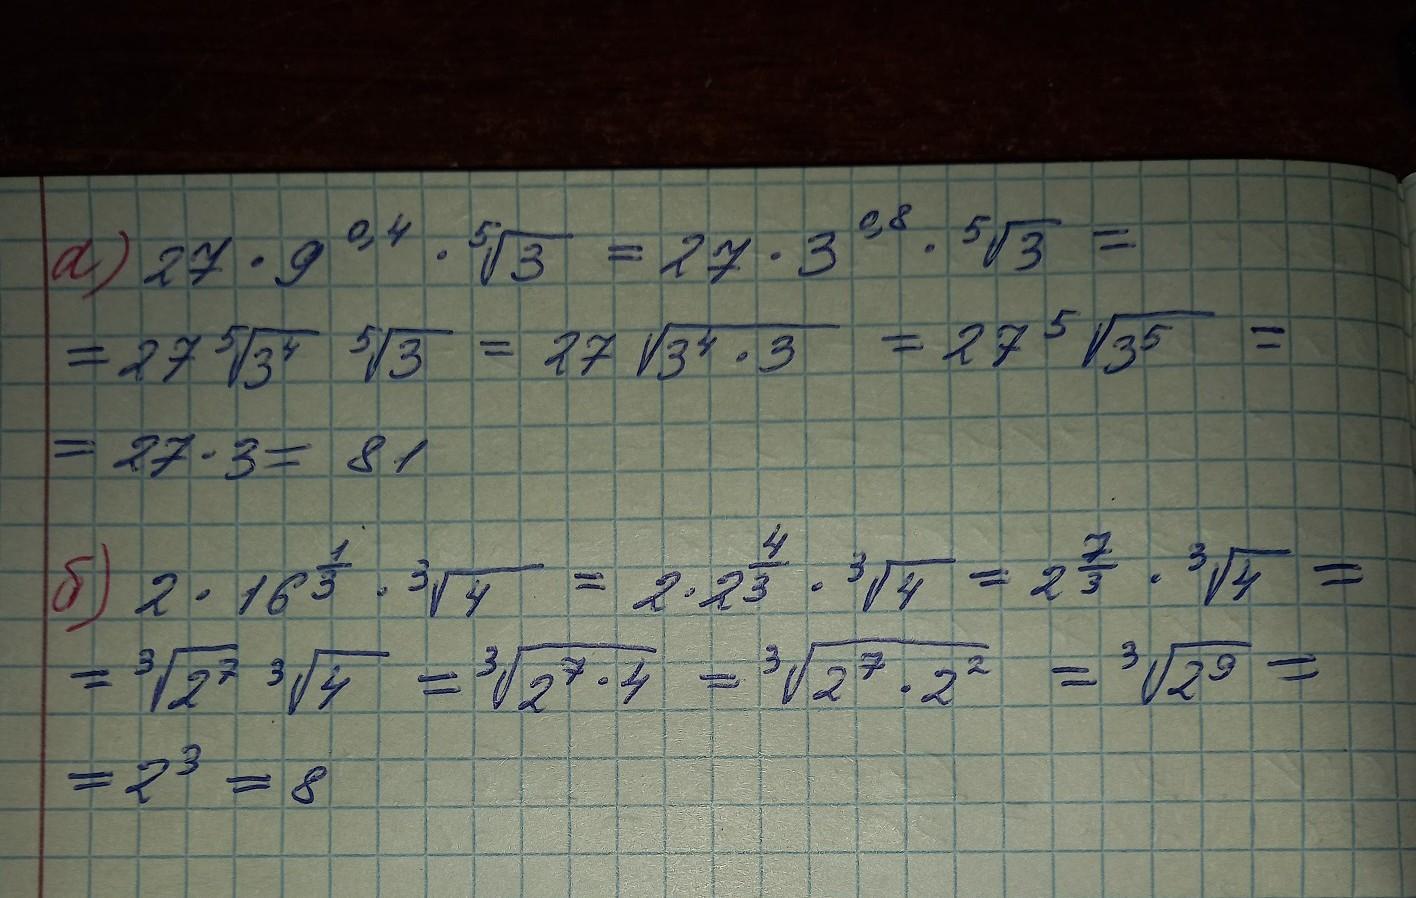 а) 27 · 9^0,4 · ⁵√3 = 27 · 3^0,8 · ⁵√3 =
= 27 ⁵√3⁴ ⁵√3 = 27 √3⁴ · 3 = 27 ⁵√3⁵ =
= 27 · 3 = 81
б) 2 · 16^1/3 · ³√4 = 2 · 2^4/3 · ³√4 = 2^7/3 · ³√4 =
= ³√2⁷ ³√4 = ³√2⁷ · 4 = ³√2⁷ · 2² = ³√2⁹ =
= 2³ = 8